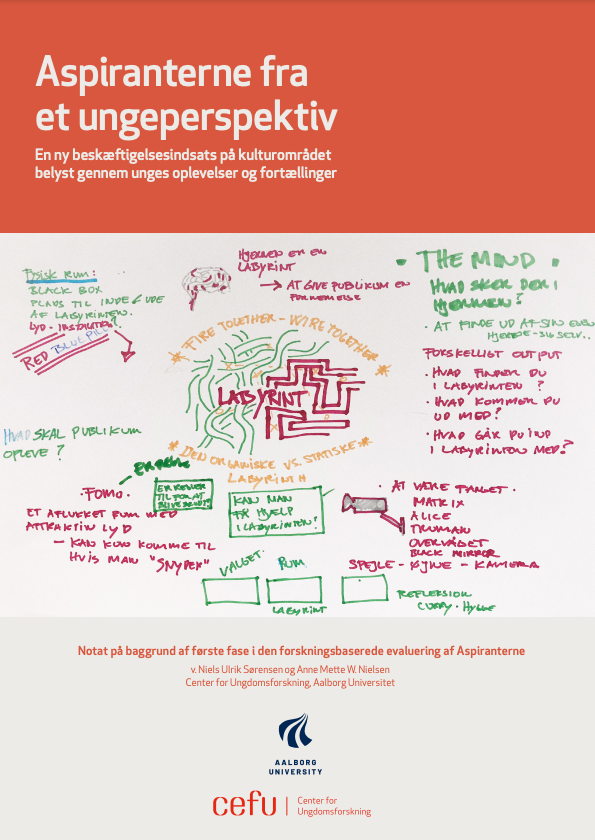 Aspiranterne fra
et ungeperspektiv
En ny beskæftigelsesindsats på kulturområdet
belyst gennem unges oplevelser og fortællinger
BLACK BOX
AF LABYRINTEN.
RED BLUE PILL
HJERNEN ER EN
LABYRINT
→ AT GIVE PUBLIKUM EN
FORNEMELSE
• THE MIND •
HVAD SKER DER I
HJERNEN?
• AT FINDE UD AF SIN EGEN
HJERNE - SIG SELV..
FORSKELLIGT OUTPUT
• HVAD FINDER DU
I LABYRINTEN ?
• HVAD KOMMER DU
UD MED?
• HVAD GÅR DU IND
I LABYRINTEN MED?
FIRE TOGETHER - WIRE TOGETHER
LABYRINT
DEN ORGANISKE VS. STATISKE
LABYRINT
HVAD SKAL PUBLIKUM
OPLEVE ?
• FOMO •
ET AFLUKKET RUM MED
ATTRAKTIV LYD
— KAN KUN KOMME TIL
HVIS MAN "SNYDER"
KAN MAN
FÅ HJELP
I LABYRINTEN?
• AT VÆRE FANGET •
MATRIX
ALICE
TRUMAN
OVERVÅGET
BLACK MIRROR
SPEJLE - ØJNE - KAMERA
VALGET.
RUM
LABYRINT
REFLEKSION
Notat på baggrund af første fase i den forskningsbaserede evaluering af Aspiranterne
v. Niels Ulrik Sørensen og Anne Mette W. Nielsen
Center for Ungdomsforskning, Aalborg Universitet
AALBORG
UNIVERSITY
cefu
Center for
Ungdomsforskning